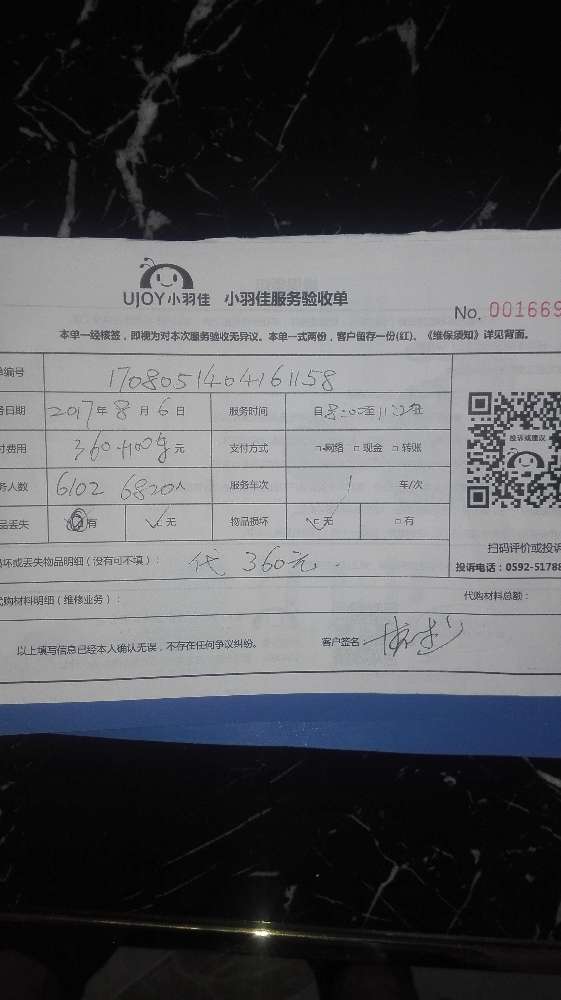 UJOY小羽佳 小羽佳服务验收单
No. 001669
本单一经核签，即视为对本次服务验收无异议。本单一式两份，客户留存一份(红)。《维保须知》详见背面。
单编号 1708051404161158
务日期 2017年8月6日 服务时间 自8:00至
付费用 360+100 元 支付方式 □网络 □现金 □转账
务人数 6102 6820人 服务车次 1 车/次
品丢失 有 ✓无 物品损坏 ✓无 □有
投诉或建议
损坏或丢失物品明细（没有可不填）： 代 360元.
扫码评价或投诉
投诉电话：0592-51788
代购材料明细（维修业务）： 代购材料总额：
以上填写信息已经本人确认无误，不存在任何争议纠纷。 客户签名